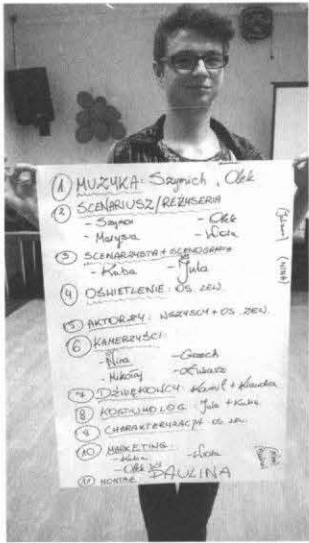 ① MUZYKA: Szymich, Olek
② SCENARIUSZ/REŻYSERIA
- Szymon - Olek
- Marysia - Wiola
③ SCENARZYSTA + SCENOGRAFIA
- Kuba - Jula
④ OŚWIETLENIE: OS. ZEW.
⑤ AKTORZY: WSZYSCY + OS. ZEW.
⑥ KAMERZYŚCI:
- Nina - Grzech
- Mikołaj - Łukasz
⑦ DŹWIĘKOWCY: Kamil + Klaudia
⑧ KOSTIUMOLOG: Jula + Kuba
⑨ CHARAKTERYZACJA OS. ZEW.
⑩ MARKETING:
- Kuba - Wiola
- Olek
⑪ MONTAŻ: PAULINA